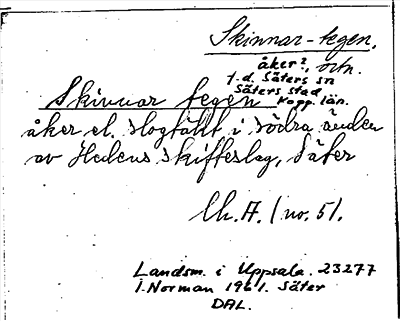 Skinnar-tegen,
åker?, ortn.
f.d. Säters sn
Säters stad
Kopp. län.
Skinnar tegen
åker el. slogtäkt i södra änden
av Hedens skifteslag, Säter
Ch. A. (no. 51.
Landsm. i Uppsala. 23277
I. Norman 1961. Säter
DAL.